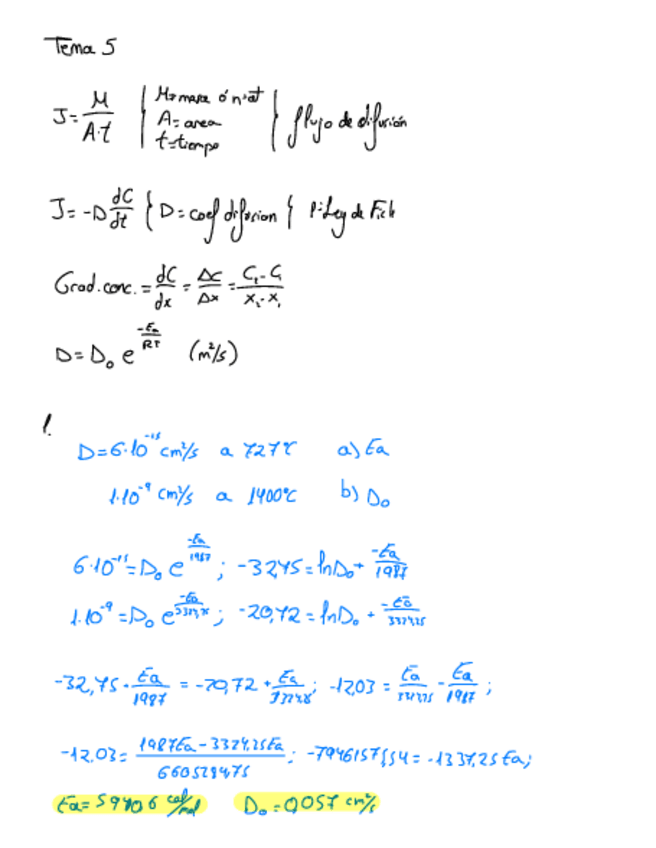 Tema 5
J = M/A·t { M = masa ó nºat
A = area
t = tiempo } flujo de difusión
J = -D dC/dt { D = coef difusion } 1ª Ley de Fick
Grad. conc. = dC/dx = ΔC/Δx = C₂-C₁/x₂-x₁
D = D₀ e^(-Ea/RT) (m²/s)
1.
D = 6·10⁻¹⁵ cm²/s a 727ºC a) Ea
1·10⁻⁹ cm²/s a 1400ºC b) D₀
6·10⁻¹⁵ = D₀ e^(-Ea/1987) ; -32,75 = ln D₀ + -Ea/1987
1·10⁻⁹ = D₀ e^(-Ea/3324,25) ; -20,72 = ln D₀ + -Ea/3324,25
-32,75 + Ea/1987 = -20,72 + Ea/3324,25 ; -12,03 = Ea/3324,25 - Ea/1987 ;
-12,03 = 1987Ea - 3324,25Ea/6605284,75 ; -79461575,54 = -1337,25 Ea ;
Ea = 59406 cal/mol D₀ = 0,057 cm²/s